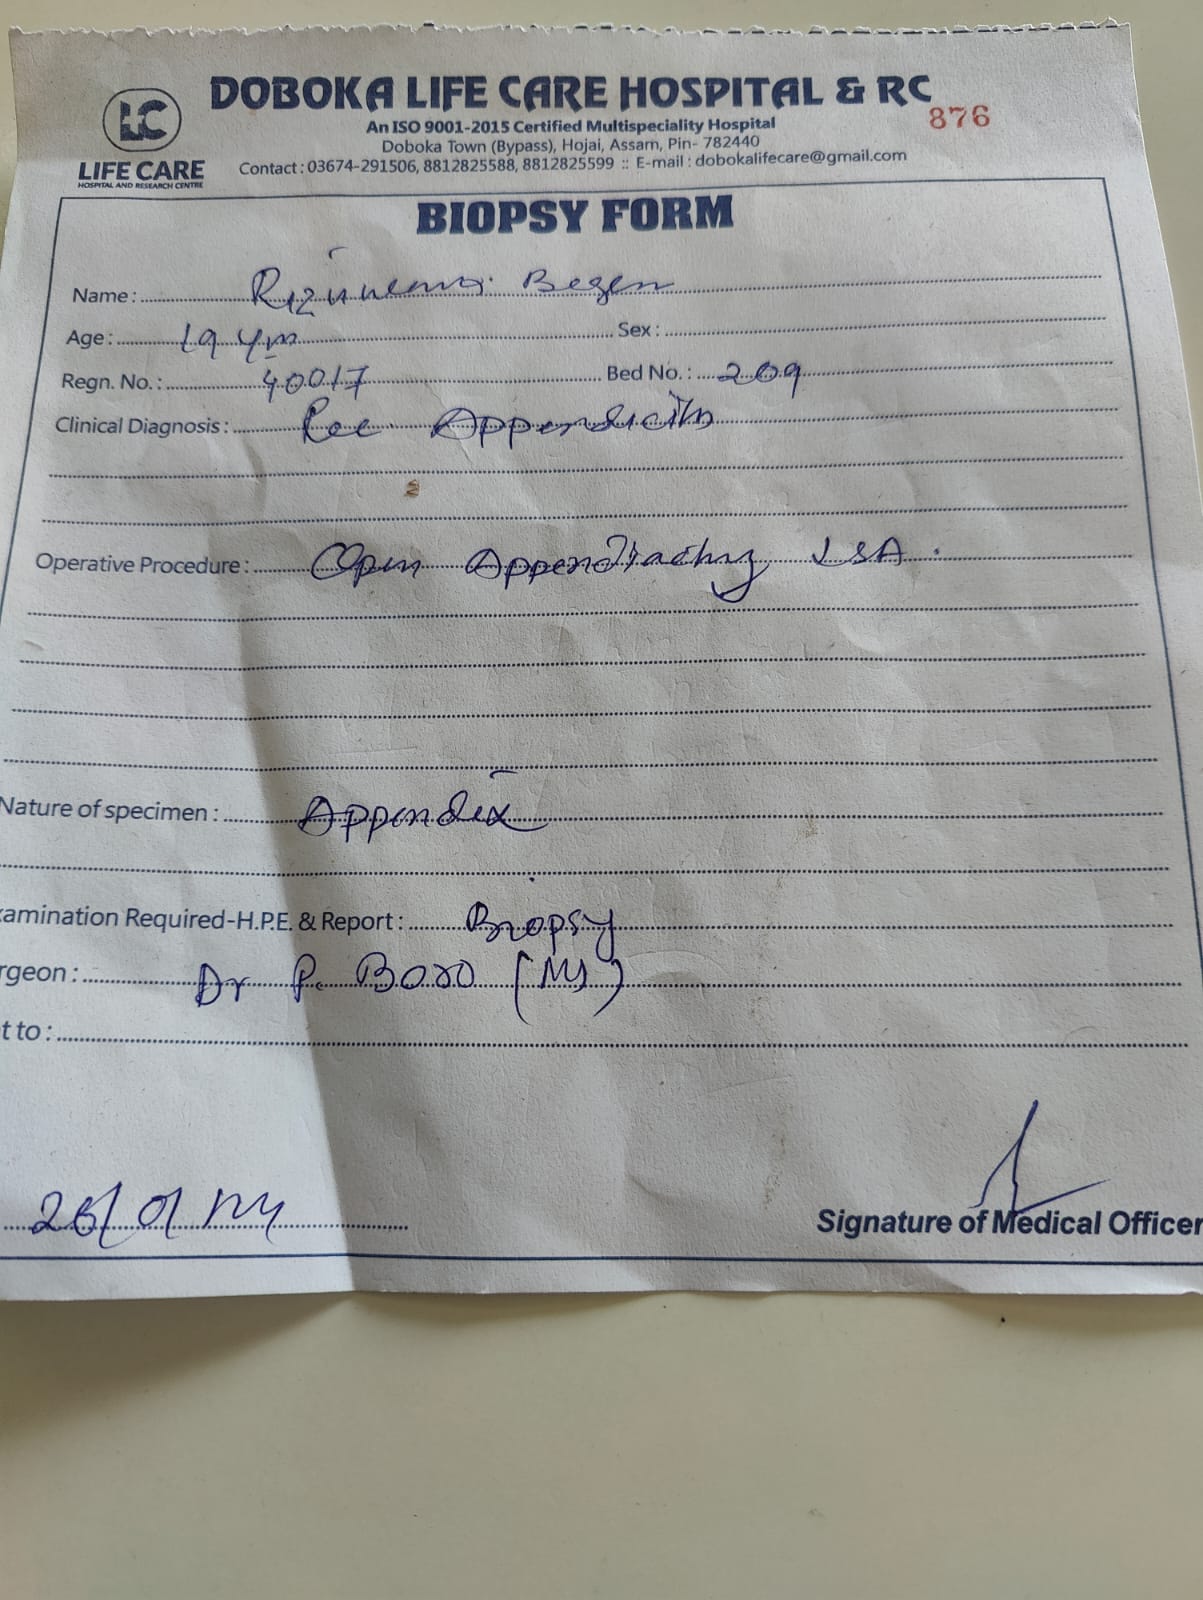 DOBOKA LIFE CARE HOSPITAL & RC
876
LC
LIFE CARE
HOSPITAL AND RESEARCH CENTRE
An ISO 9001-2015 Certified Multispeciality Hospital
Doboka Town (Bypass), Hojai, Assam, Pin- 782440
Contact : 03674-291506, 8812825588, 8812825599 :: E-mail : dobokalifecare@gmail.com
BIOPSY FORM
Name :
Age : 19 Yrs
Sex :
Regn. No. : 40017
Bed No. : 209
Clinical Diagnosis : Rec. Appendicitis
Operative Procedure : Open Appendicectomy
Nature of specimen : Appendix
amination Required-H.P.E. & Report : Biopsy
rgeon : Dr P. Boro (MS)
t to :
Signature of Medical Officer